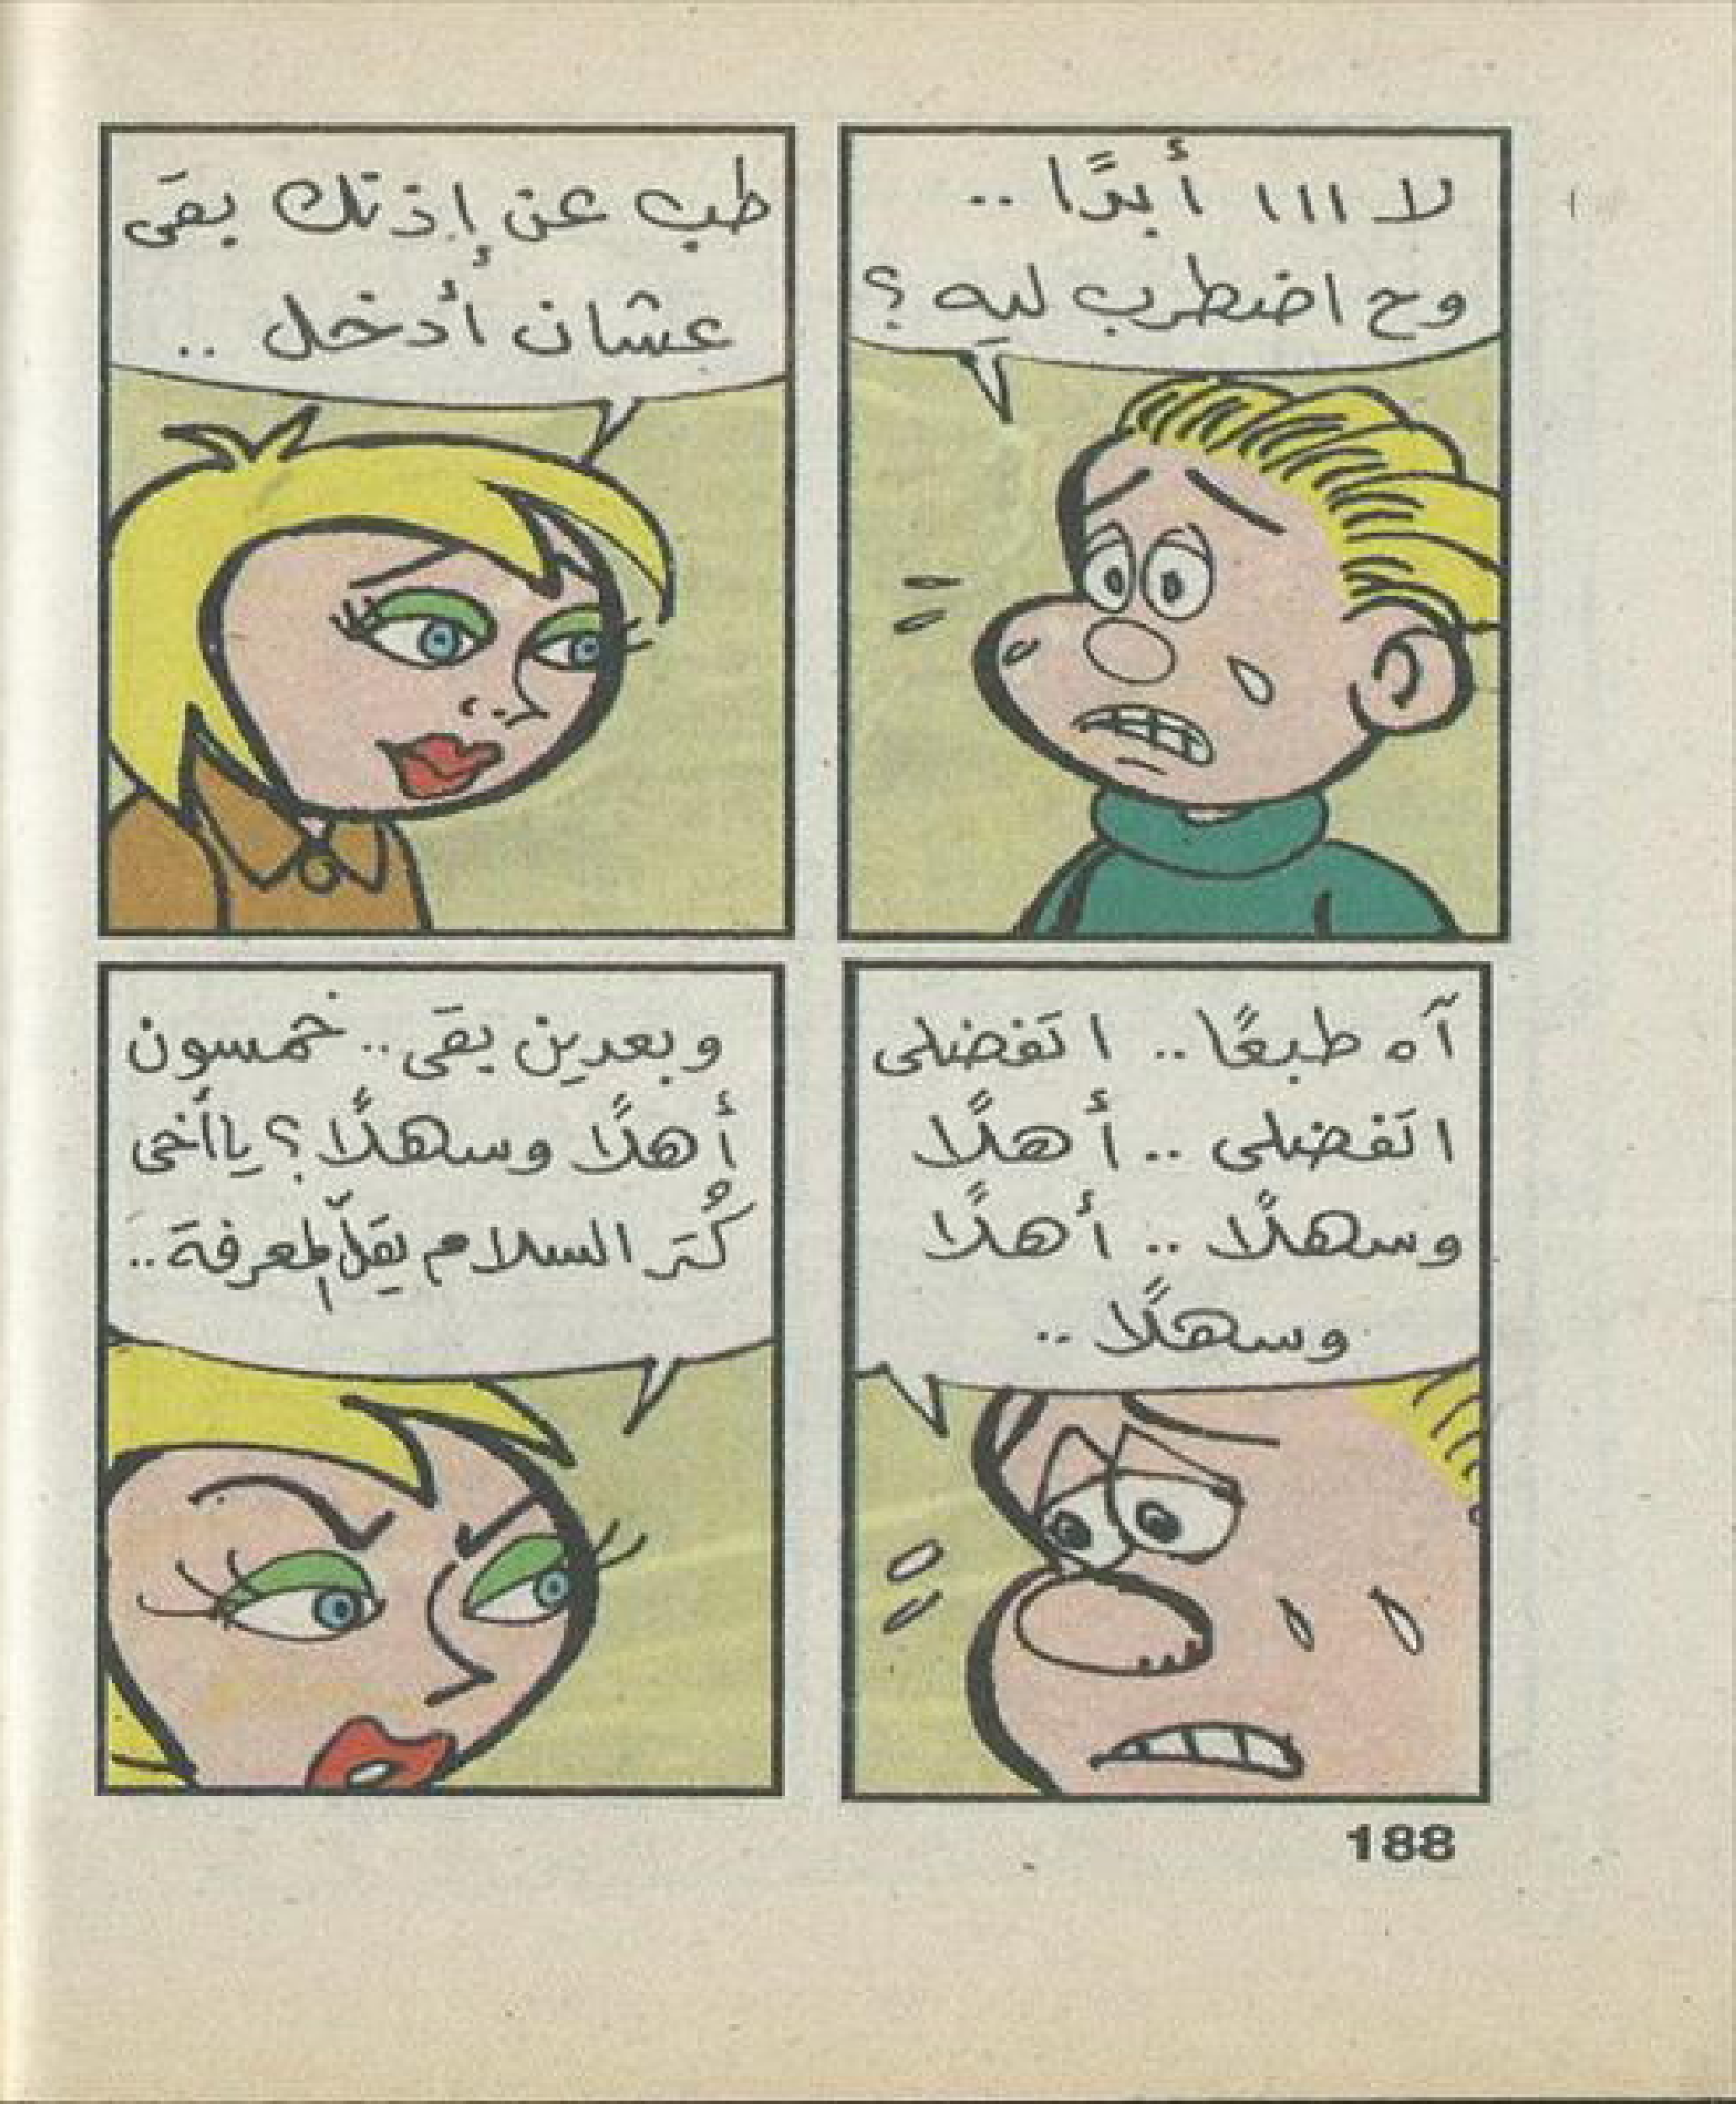 لا ااا أبدًا ..
وح اضطرب ليه ؟
طب عن إذنك بقى
عشان أدخل ..
آه طبعًا .. اتفضلى
اتفضلى .. أهلًا
وسهلًا .. أهلًا
وسهلًا ..
وبعدين بقى .. خمسون
أهلًا وسهلًا ؟ يا أخى
كُتر السلام يقلّ المعرفة ..
188